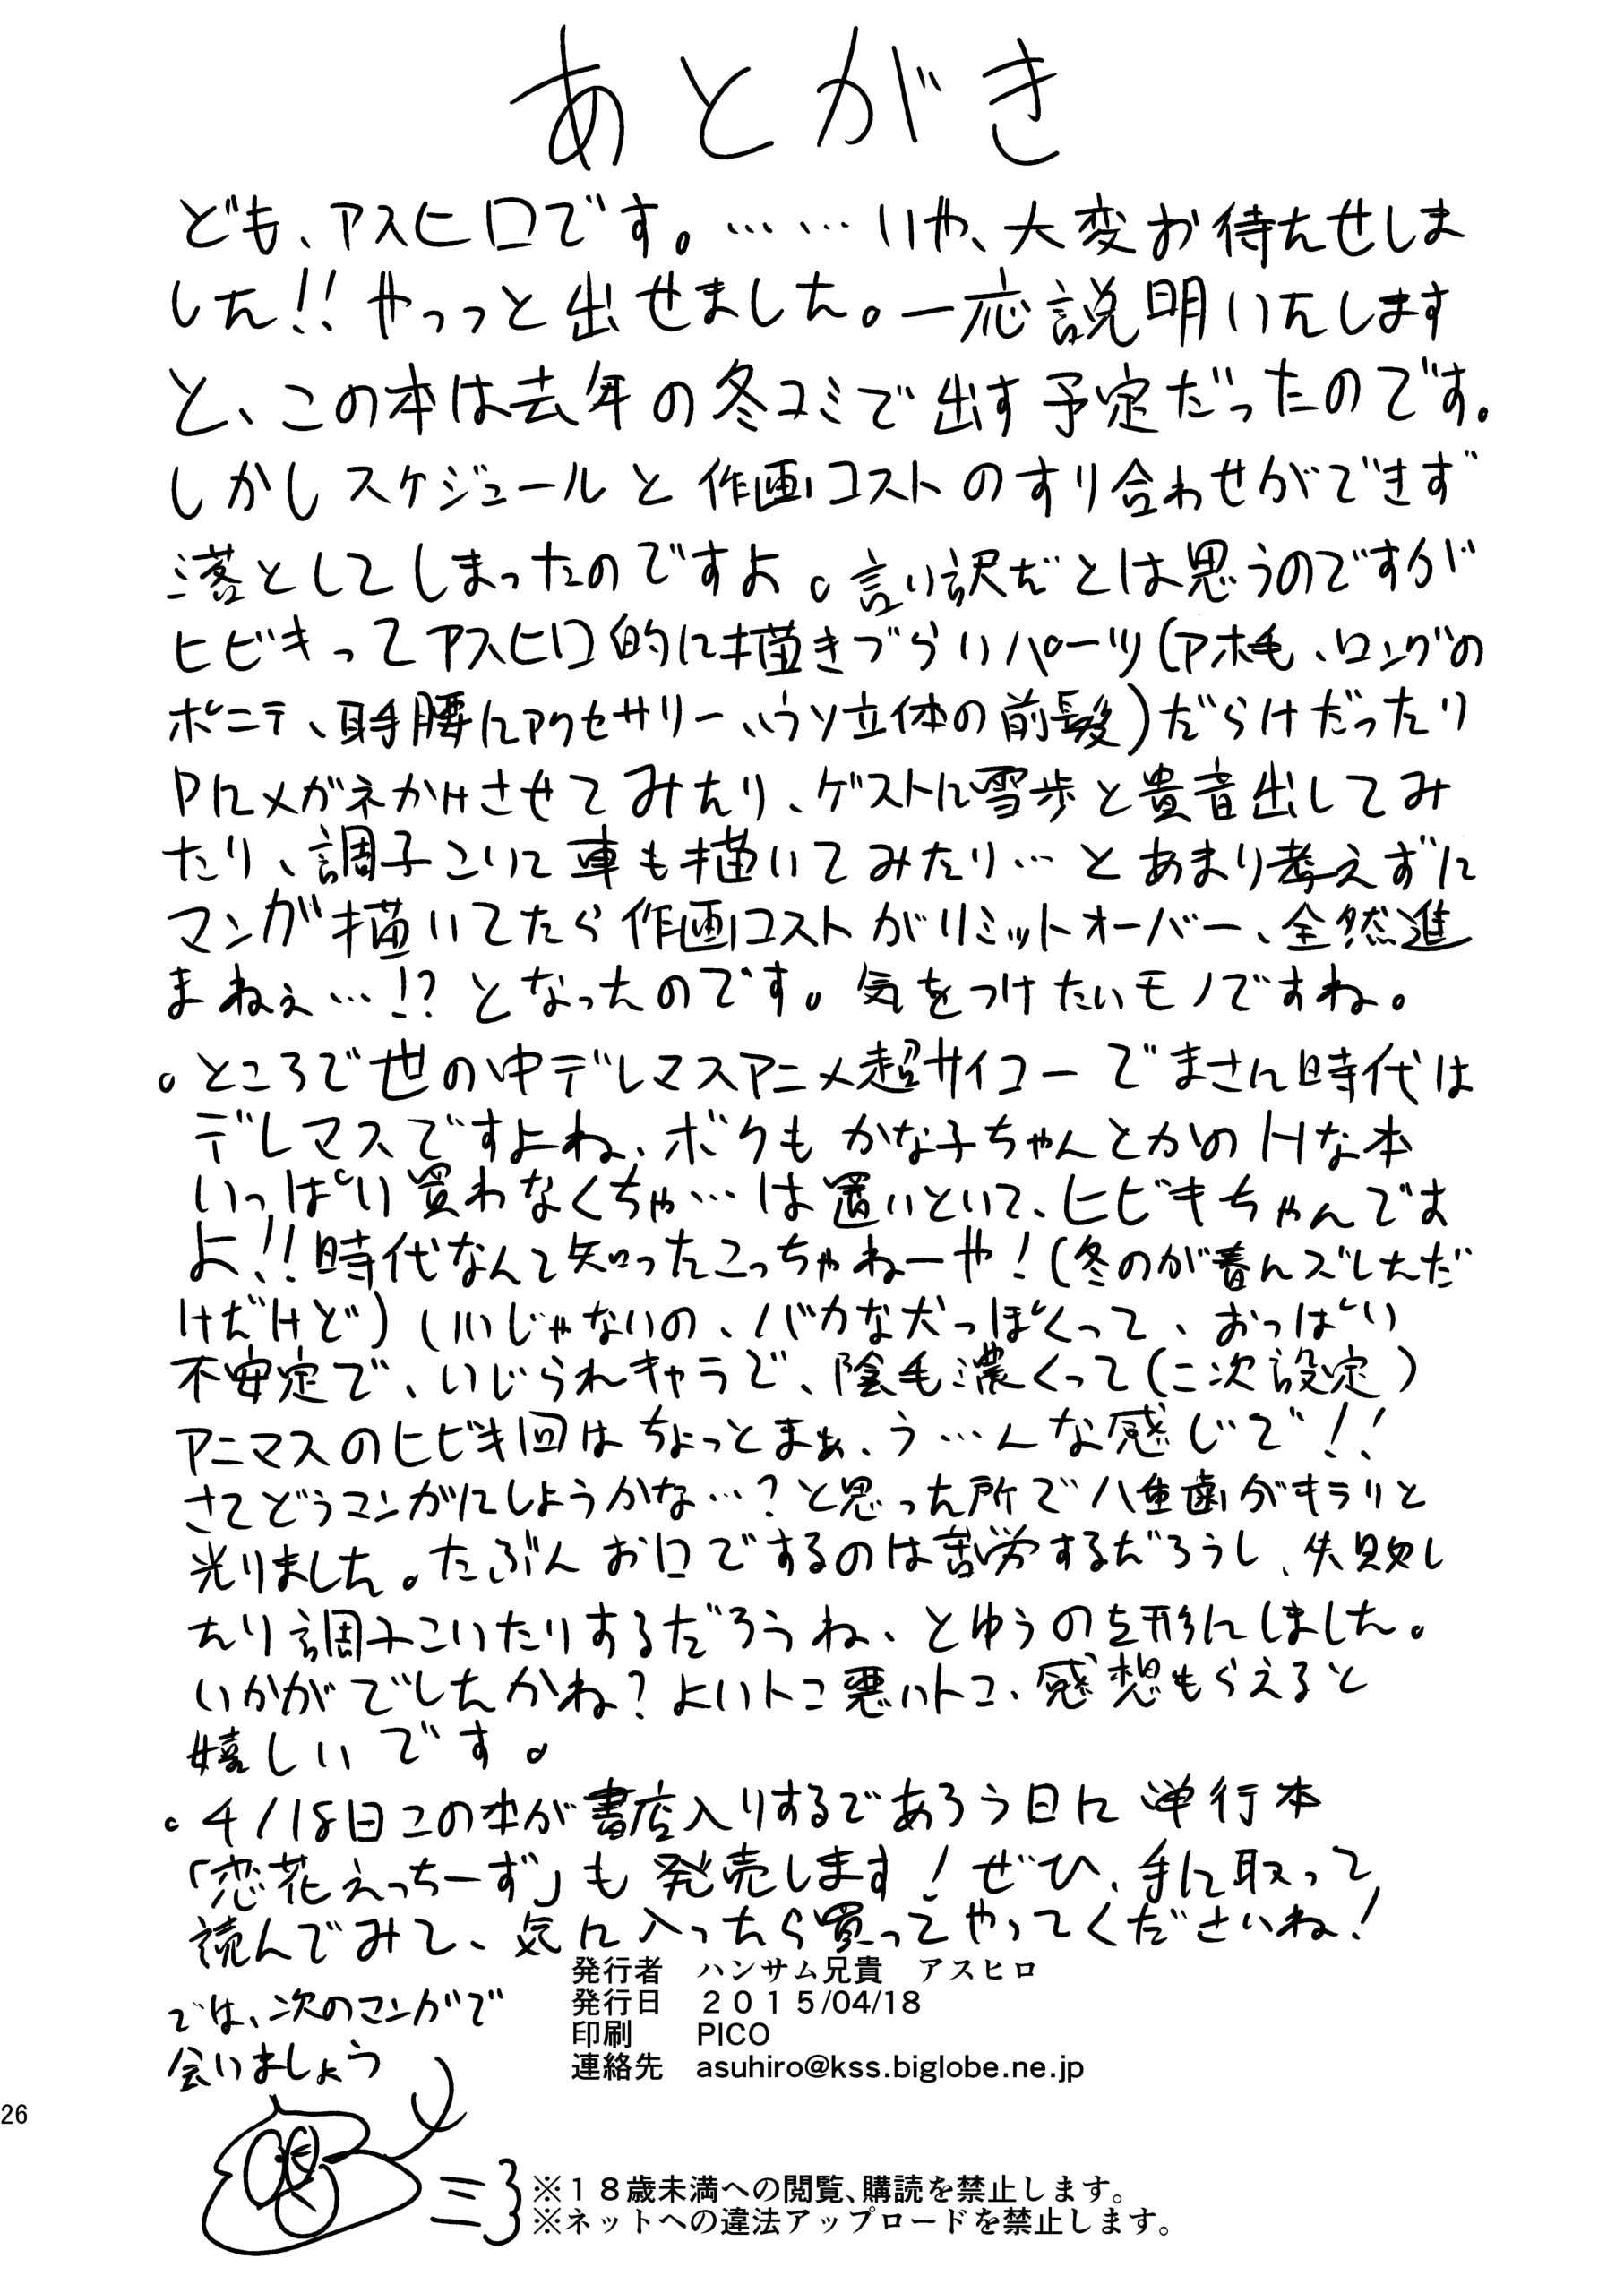 あとがき
ども、アスヒロです。……いや、大変お待たせしま
した!! やっっと出せました。一応説明いたします
と、この本は去年の冬コミで出す予定だったのです。
しかしスケジュールと作画コストのすり合わせができず
落としてしまったのですよ。言い訳だとは思うのですが
ヒビキってアスヒロ的に描きづらいパーツ(アホ毛、ロングの
ポニテ、耳手腰にアクセサリー、ウソ立体の前髪)だらけだったり
Pにメガネかけさせてみたり、ゲストに雪歩と貴音出してみ
たり、調子こいて車も描いてみたり…とあまり考えずに
マンガ描いてたら作画コストがリミットオーバー、全然進
まねぇ…!? となったのです。気をつけたいモノですね。
。ところで世の中デレマスアニメ超サイコーでまさに時代は
デレマスですよね、ボクもかな子ちゃんとかのHな本
いっぱい買わなくちゃ…は置いといて、ヒビキちゃんです
よ!! 時代なんて知ったこっちゃねーや!(冬のが春にズレただ
けだけど)いいじゃないの、バカな犬っぽくって、おっぱい
不安定で、いじられキャラで、陰毛濃くって(二次設定)
アニマスのヒビキ回はちょっとまぁ、う…んな感じで!!
さてどうマンガにしようかな…?と思った所で八重歯がキラリと
光りました。たぶんお口でするのは苦労するだろうし、失敗し
たり調子こいたりするだろうね、とゆうのを形にしました。
いかがでしたかね?よいトコ悪いトコ、感想もらえると
嬉しいです。
。4/18日この本が書店入りするであろう日に単行本
「恋花えっちーず」も発売します! ぜひ、手に取って
読んでみて、気に入ったら買ってやってくださいね!
では、次のマンガで
会いましょう
発行者 ハンサム兄貴 アスヒロ
発行日 ２０１５/04/18
印刷 PICO
連絡先 asuhiro@kss.biglobe.ne.jp
26
※１８歳未満への閲覧、購読を禁止します。
※ネットへの違法アップロードを禁止します。